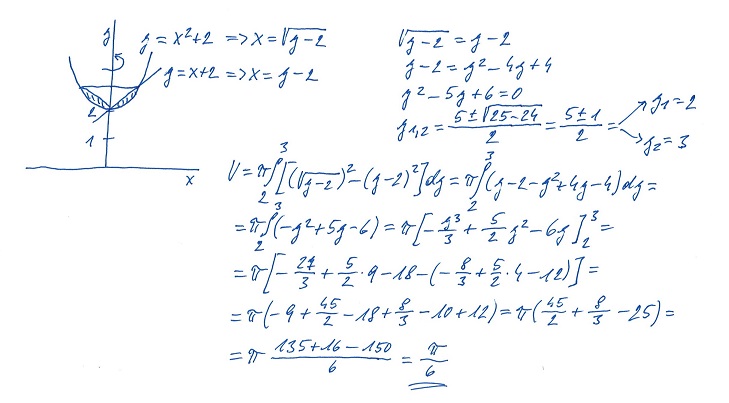 y
y = x²+2 => x = √(y-2)
y = x+2 => x = y-2
2
1
x
√(y-2) = y-2
y-2 = y²-4y+4
y²-5y+6=0
y₁,₂ = (5±√(25-24))/2 = (5±1)/2 = y₁=2
y₂=3
V = π∫₂³[(√(y-2))²-(y-2)²]dy = π∫₂³(y-2-y²+4y-4)dy =
= π∫₂³(-y²+5y-6) = π[-y³/3 + 5/2 y² - 6y]₂³ =
= π[-27/3 + 5/2·9 - 18 - (-8/3 + 5/2·4 - 12)] =
= π(-9 + 45/2 - 18 + 8/3 - 10 + 12) = π(45/2 + 8/3 - 25) =
= π (135+16-150)/6 = π/6